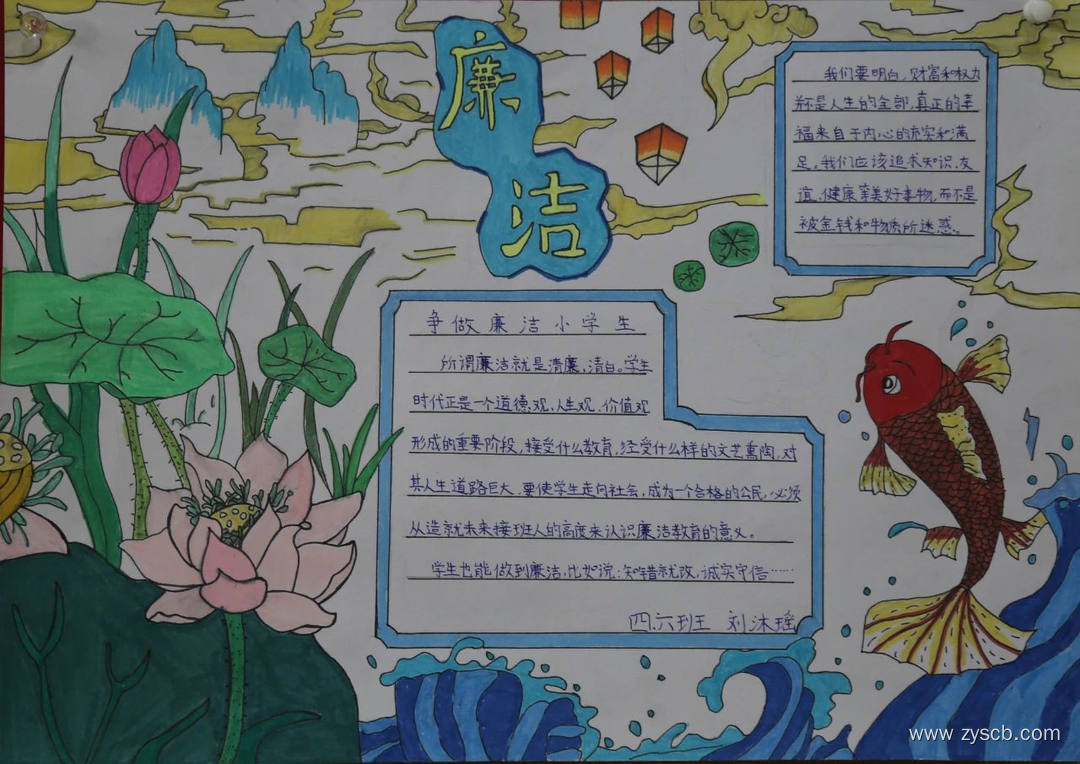 廉
洁
我们要明白,财富和权力
并不是人生的全部,真正的幸
福来自于内心的充实和满
足。我们应该追求知识、友
谊、健康等美好事物,而不是
被金钱和物质所迷惑。
争做廉洁小学生
所谓廉洁就是清廉,清白。学生
时代正是一个道德观、人生观、价值观
形成的重要阶段,接受什么教育,经受什么样的文艺熏陶,对
其人生道路巨大,要使学生走向社会,成为一个合格的公民,必须
从造就未来接班人的高度来认识廉洁教育的意义。
学生也能做到廉洁,比如说:知错就改,诚实守信……
四六班 刘沐瑶
www.zyscb.com